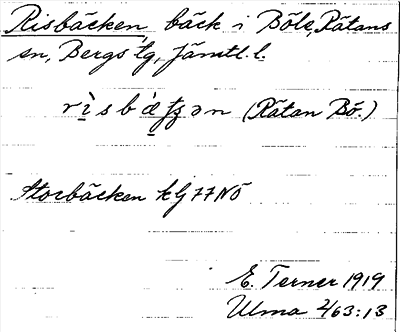 Risbäcken, bäck i Böle, Rätans
sn, Bergs tg, Jämtl. l.
(Rätan Bö.)
Storbäcken kG 77 NÖ
E. Terner 1919
Ulma 2/63:13